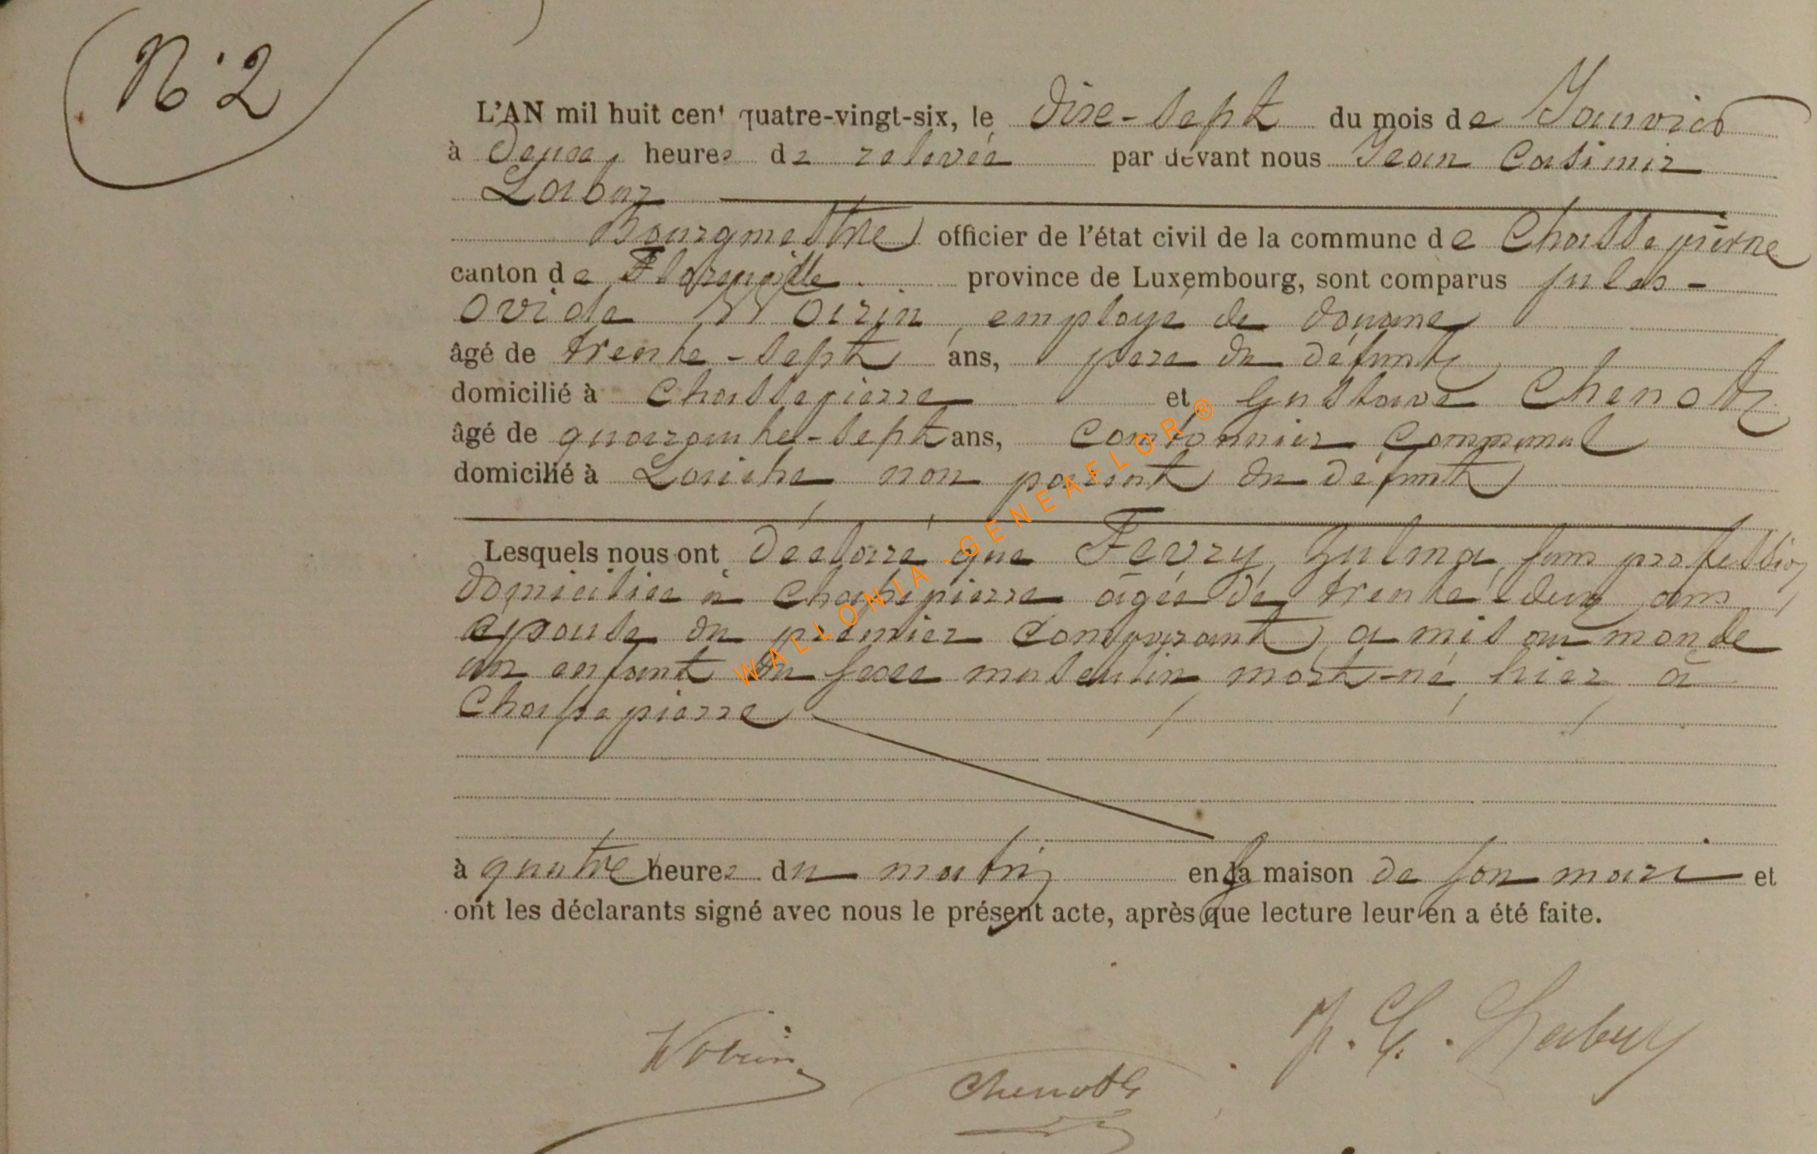 N° 2
L'AN mil huit cent quatre-vingt-six, le dixe-sept du mois de Janvier
à deux heures de relevée par devant nous Jean Casimir
Labuz
Bourgmestre officier de l'état civil de la commune de Chassepierre
canton de Florenville province de Luxembourg, sont comparus Jules-
Ovide Woirin, employé de douane
âgé de trente-sept ans, père du défunt
domicilié à Chassepierre et Gustave Chenot
âgé de quarante-sept ans, cantonnier communal
domicilié à Laiche, non parent du défunt
Lesquels nous ont déclaré que Fevry, Zulma, sans profession
domiciliée à Chassepierre âgée de trente deux ans
épouse du premier comparant, a mis au monde
un enfant du sexe masculin mort-né, hier à
Chassepierre
à quatre heures du matin en la maison de son mari et
ont les déclarants signé avec nous le présent acte, après que lecture leur en a été faite.
J. C. Labuy
Woirin
Chenot
WALLONIA - GENEAFLOR ®